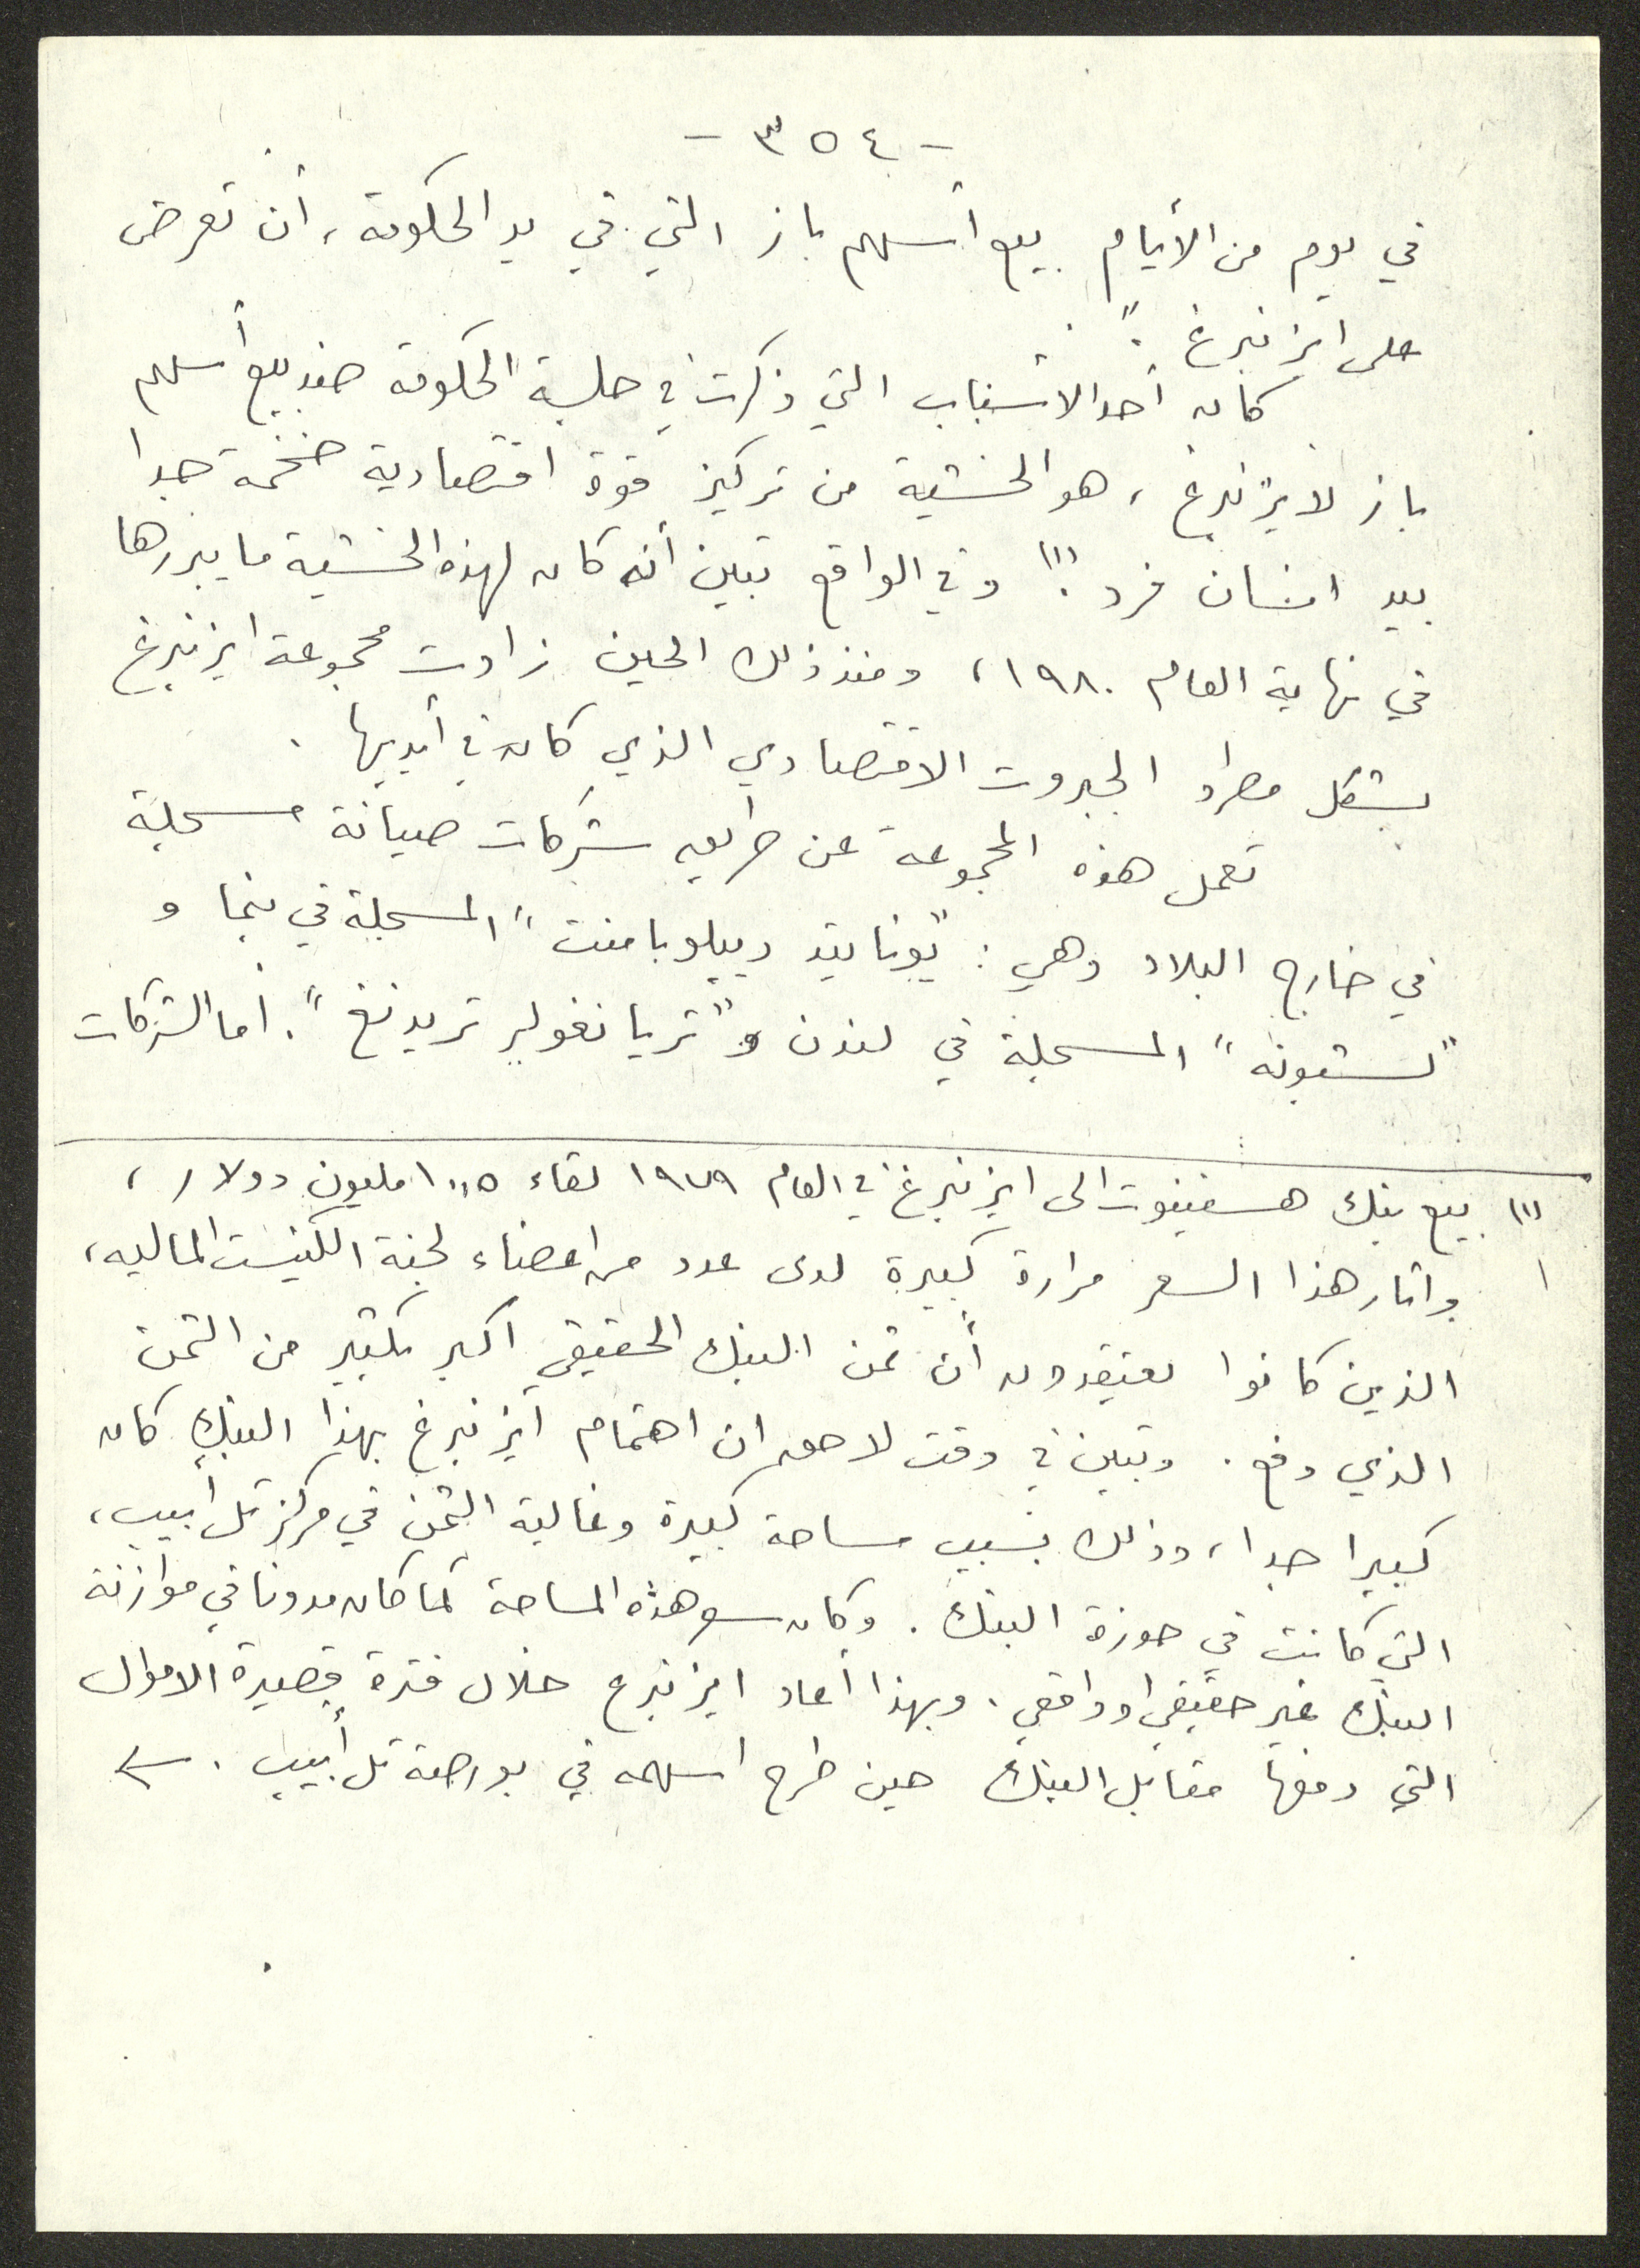 - ٣٥٤ -
في يوم من الأيام بيع أسهم باز التي في يد الحكومة، أن تعرض
على ايزنبرغ".
كان أحد الأسباب التي ذكرت في جلسة الحكومة ضد بيع أسهم
باز لايزنبرغ، هو الخشية من تركيز قوة اقتصادية ضخمة جدا
بيد انسان فرد.(١) وفي الواقع تبين أنه كان لهذه الخشية ما يبررها
في نهاية العام ١٩٨٠، ومنذ ذلك الحين زادت مجموعة ايزنبرغ
بشكل مطرد الجبروت الاقتصادي الذي كان في أيديها.
تعمل هذه المجموعة عن طريق شركات صيانة مسجلة
في خارج البلاد وهي: "يونايتد ديبلوبامنت" المسجلة في بنما و
"لستبونه" المسجلة في لندن و"تريانغولر تريدنغ". أما الشركات
(١) بيع بنك هسفينوت الى ايزنبرغ في العام ١٩٧٩ لقاء ١٠،٥ مليون دولار،
واثار هذا السعر مرارة كبيرة لدى عدد من اعضاء لجنة الكنيست الماليه،
الذين كانوا يعتقدون أن ثمن البنك الحقيقي اكبر بكثير من الثمن
الذي دفع. وتبين في وقت لاحق ان اهتمام ايزنبرغ بهذا البنك كان
كبيرا جدا، وذلك بسبب مساحة كبيرة وغالية الثمن في مركز تل أبيب،
التي كانت في حوزة البنك. وكان سعر هذه المساحة كما كان مدونا في موازنة
البنك غير حقيقي او واقعي. وبهذا أعاد ايزنبرغ خلال فترة قصيرة الاموال
التي دفعها مقابل البنك حين طرح اسهمه في بورصة تل أبيب.